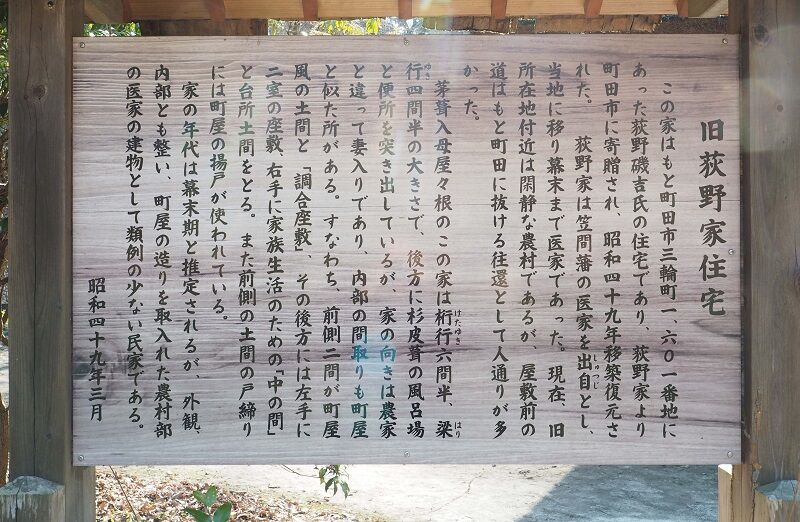 旧荻野家住宅
この家はもと町田市三輪町一、六〇一番地に
あった荻野磯吉氏の住宅であり、荻野家より
町田市に寄贈され、昭和四十九年移築復元さ
れた。　荻野家は笠間藩の医家を出自とし、
しゅつじ
当地に移り幕末まで医家であった。現在、旧
所在地付近は閑静な農村であるが、屋敷前の
道はもと町田に抜ける往還として人通りが多
かった。
茅葺入母屋々根のこの家は桁行六間半、梁
けたゆき
はり
行四間半の大きさで、後方に杉皮葺の風呂場
ゆき
と便所を突き出しているが、家の向きは農家
と違って妻入りであり、内部の間取りも町屋
と似た所がある。すなわち、前側二間が町屋
風の土間と「調合座敷」、その後方には左手に
二室の座敷、右手に家族生活のための「中の間」
と台所土間をとる。また前側の土間の戸締り
には町屋の揚戸が使われている。
家の年代は幕末期と推定されるが、外観、
内部とも整い、町屋の造りを取入れた農村部
の医家の建物として類例の少ない民家である。
昭和四十九年三月